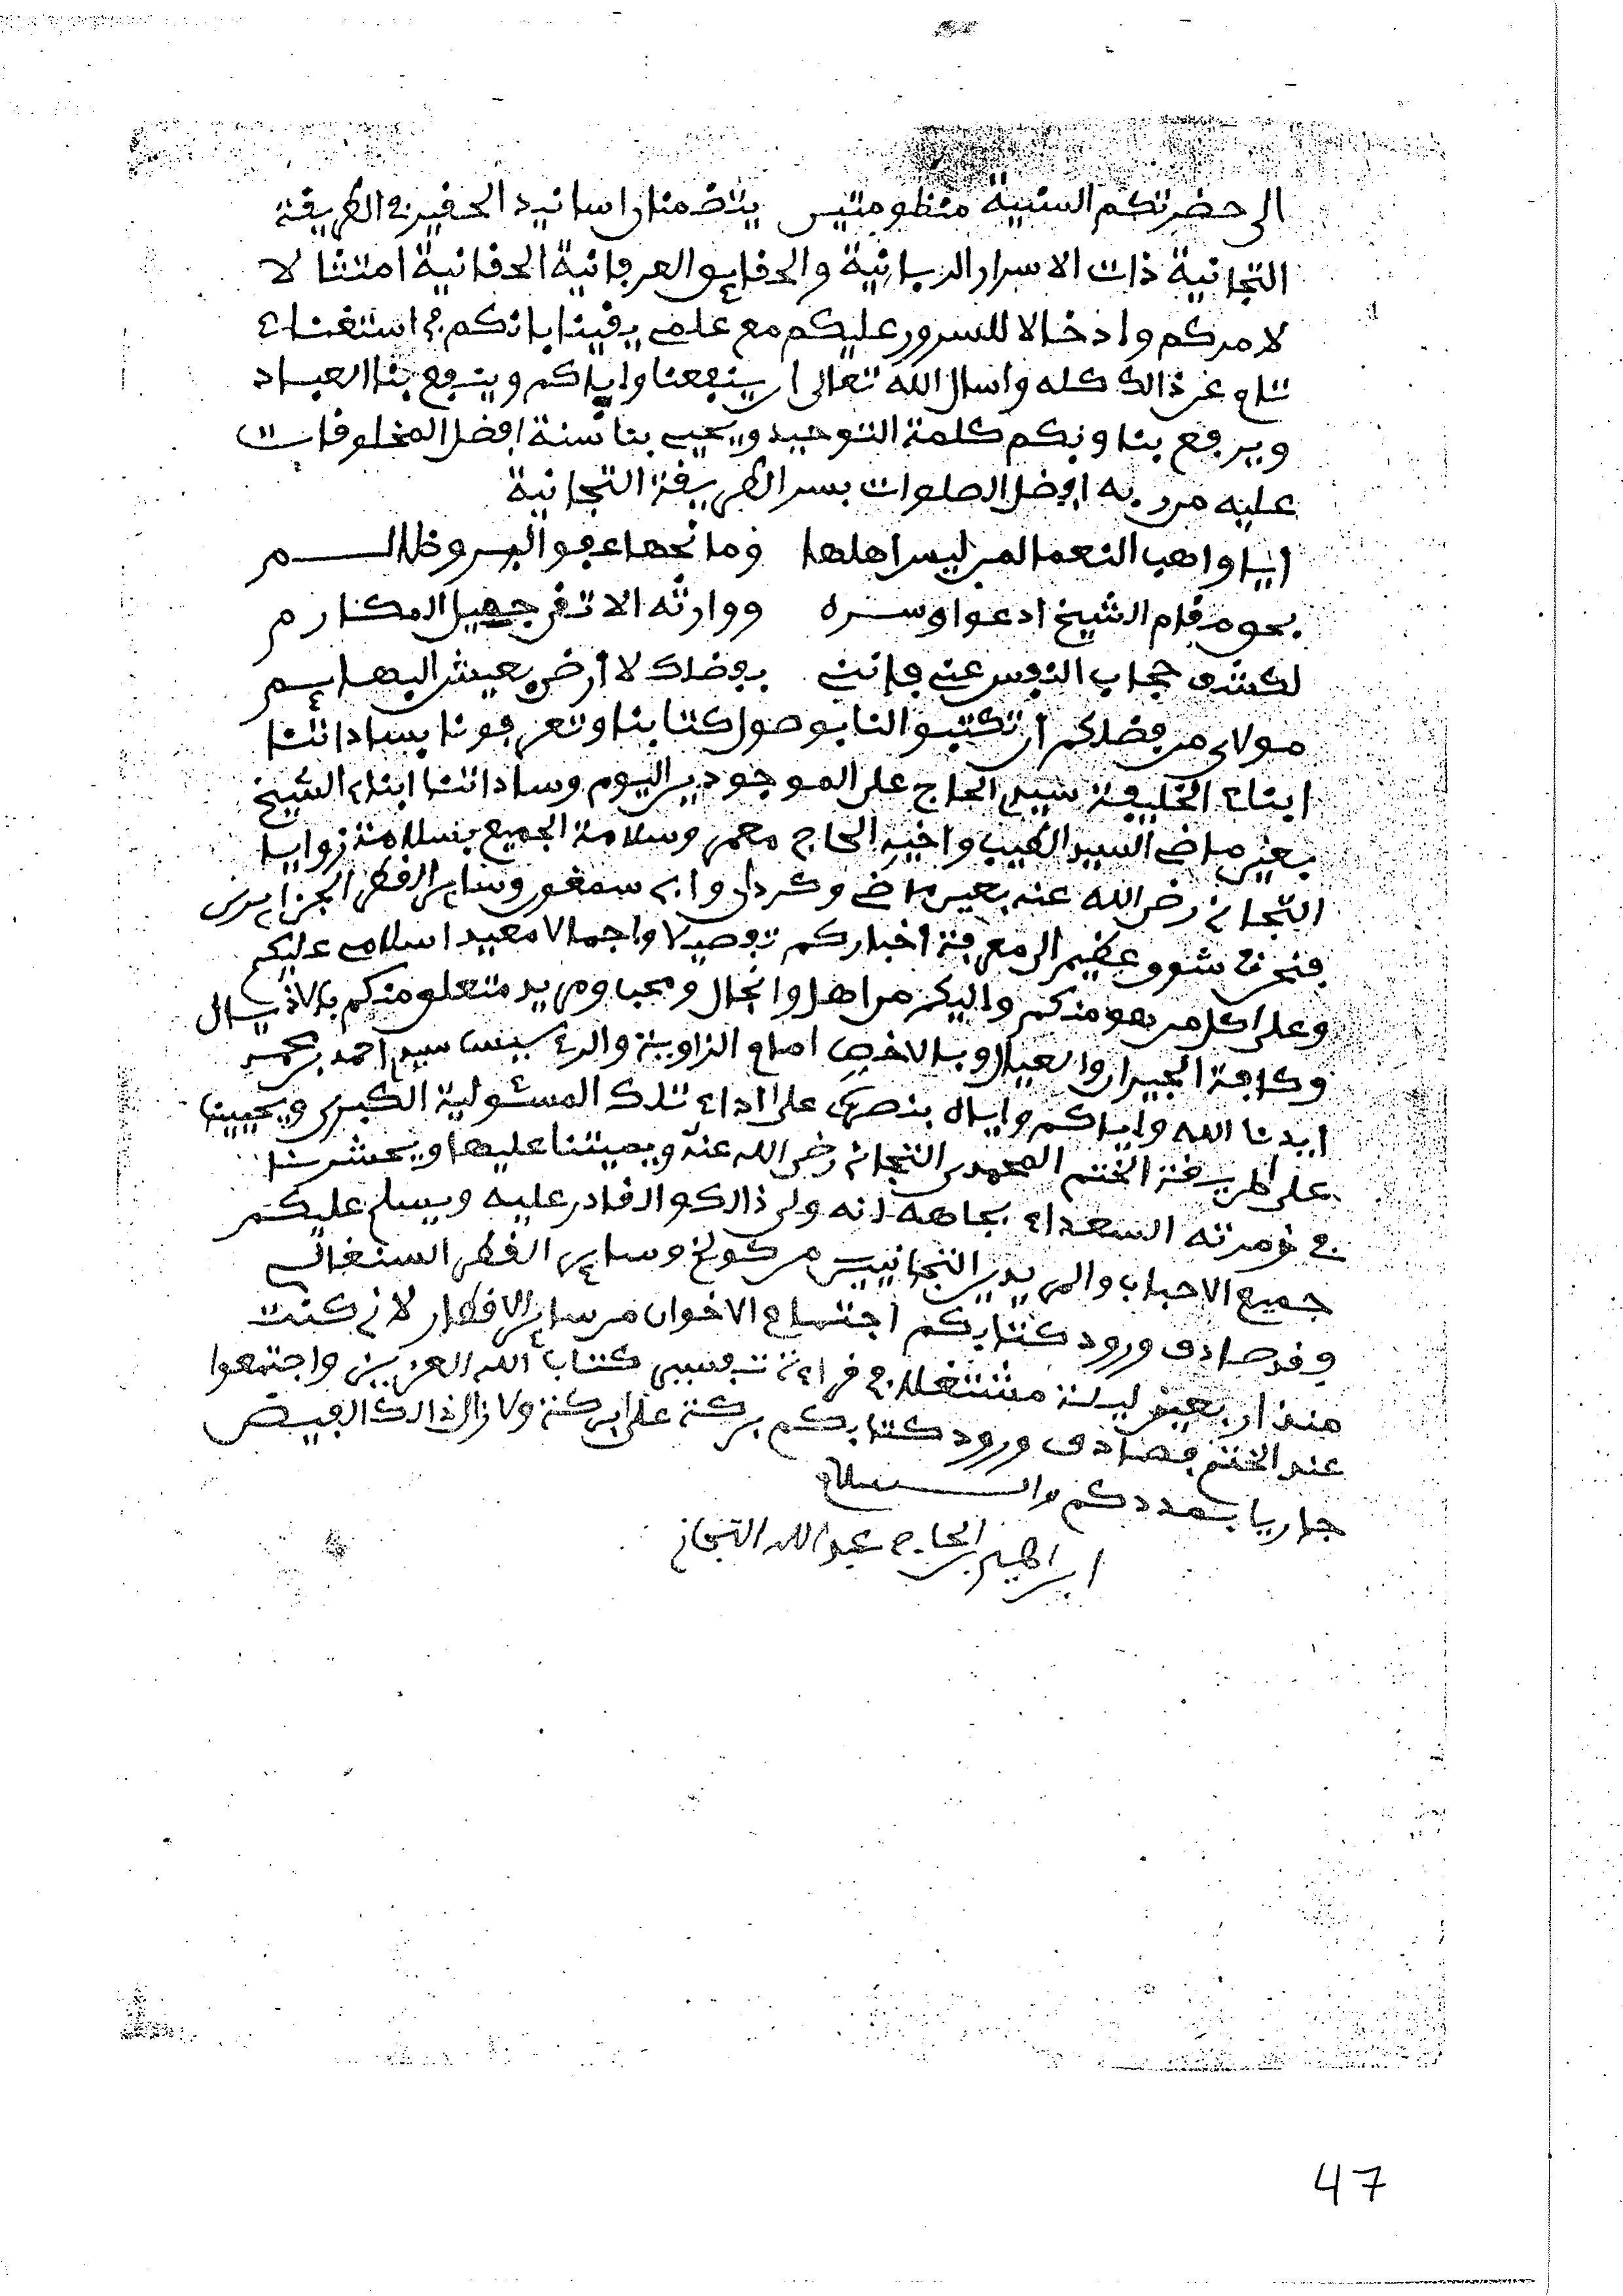 الى حضرتكم السنية منظومتين يتضمنان اسانيد الحقير في الطريقة
التجانية ذات الاسرار الربانية والحقايق العرفانية الحقانية امتثالا
لامركم وادخالا للسرور عليكم مع علمي يقينا بانكم في استغناء
تام عن ذالك كله واسال الله تعالى ان ينفعنا واياكم وينفع بنا العباد
ويرفع بنا وبكم كلمة التوحيد ويحيي بنا سنة افضل المخلوقات
عليه من ربه افضل الصلوات بسر الطريقة التجانية
ايا واهب النعما لمن ليس اهلها ومانحها عفو البر وظالم
بحق مقام الشيخ ادعوا وسره ووارثه الاتقى جميل المكارم
لكشف حجاب النفس عني فانني بفضلك لا أرضى بعيش البهايم
مولاي من فضلكم أن تكتبوا لنا بوصول كتابنا وتعرفونا بساداتنا
ابناء الخليفة سيدي الحاج علي الموجودين اليوم وساداتنا ابناء الشيخ
بعين ماضي السيد الطيب واخيه الحاج معمر وسلامة الجميع بسلامة زوايا
التجاني رضي الله عنه بعين ماضي وكردان وابي سمغون وساير القطر الجزايري
فنحن في شوق عظيم الى معرفة اخباركم تفصيلا واجمالا معيد اسلامي عليكم
وعلى كل من هو منكم واليكم من اهل وانجال ومحب ومريد متعلق منكم بالاذيال
وكافة الجيران والعيال وبالاخص امام الزاوية والرءيس سيدي احمد بن حمـ
ايدنا الله واياكم واياه بنصره على اداء تلك المسئولية الكبرى ويحيينا
على طريقة الختم المحمدي التجاني رضي الله عنه ويميتنا عليها ويحشرنا
في زمرته السعداء بجاهه انه ولي ذالك والقادر عليه ويسلم عليكم
جميع الاحباب والمريدين التجانيين من كولخ وساير القطر السنغالي
وقد صادف ورود كتابكم اجتماع الاخوان من ساير الاقطار لاني كنت
منذ اربعين ليلة مشتغلا في قراءة تفسير كتاب الله العزيز واجتمعوا
عند الختم فصادف ورود كتابكم بركة على بركة ولا زال ذالك الفيض
جاريا بمددكم والسلام
ابراهيم بن الحاج عبد الله التجاني
47